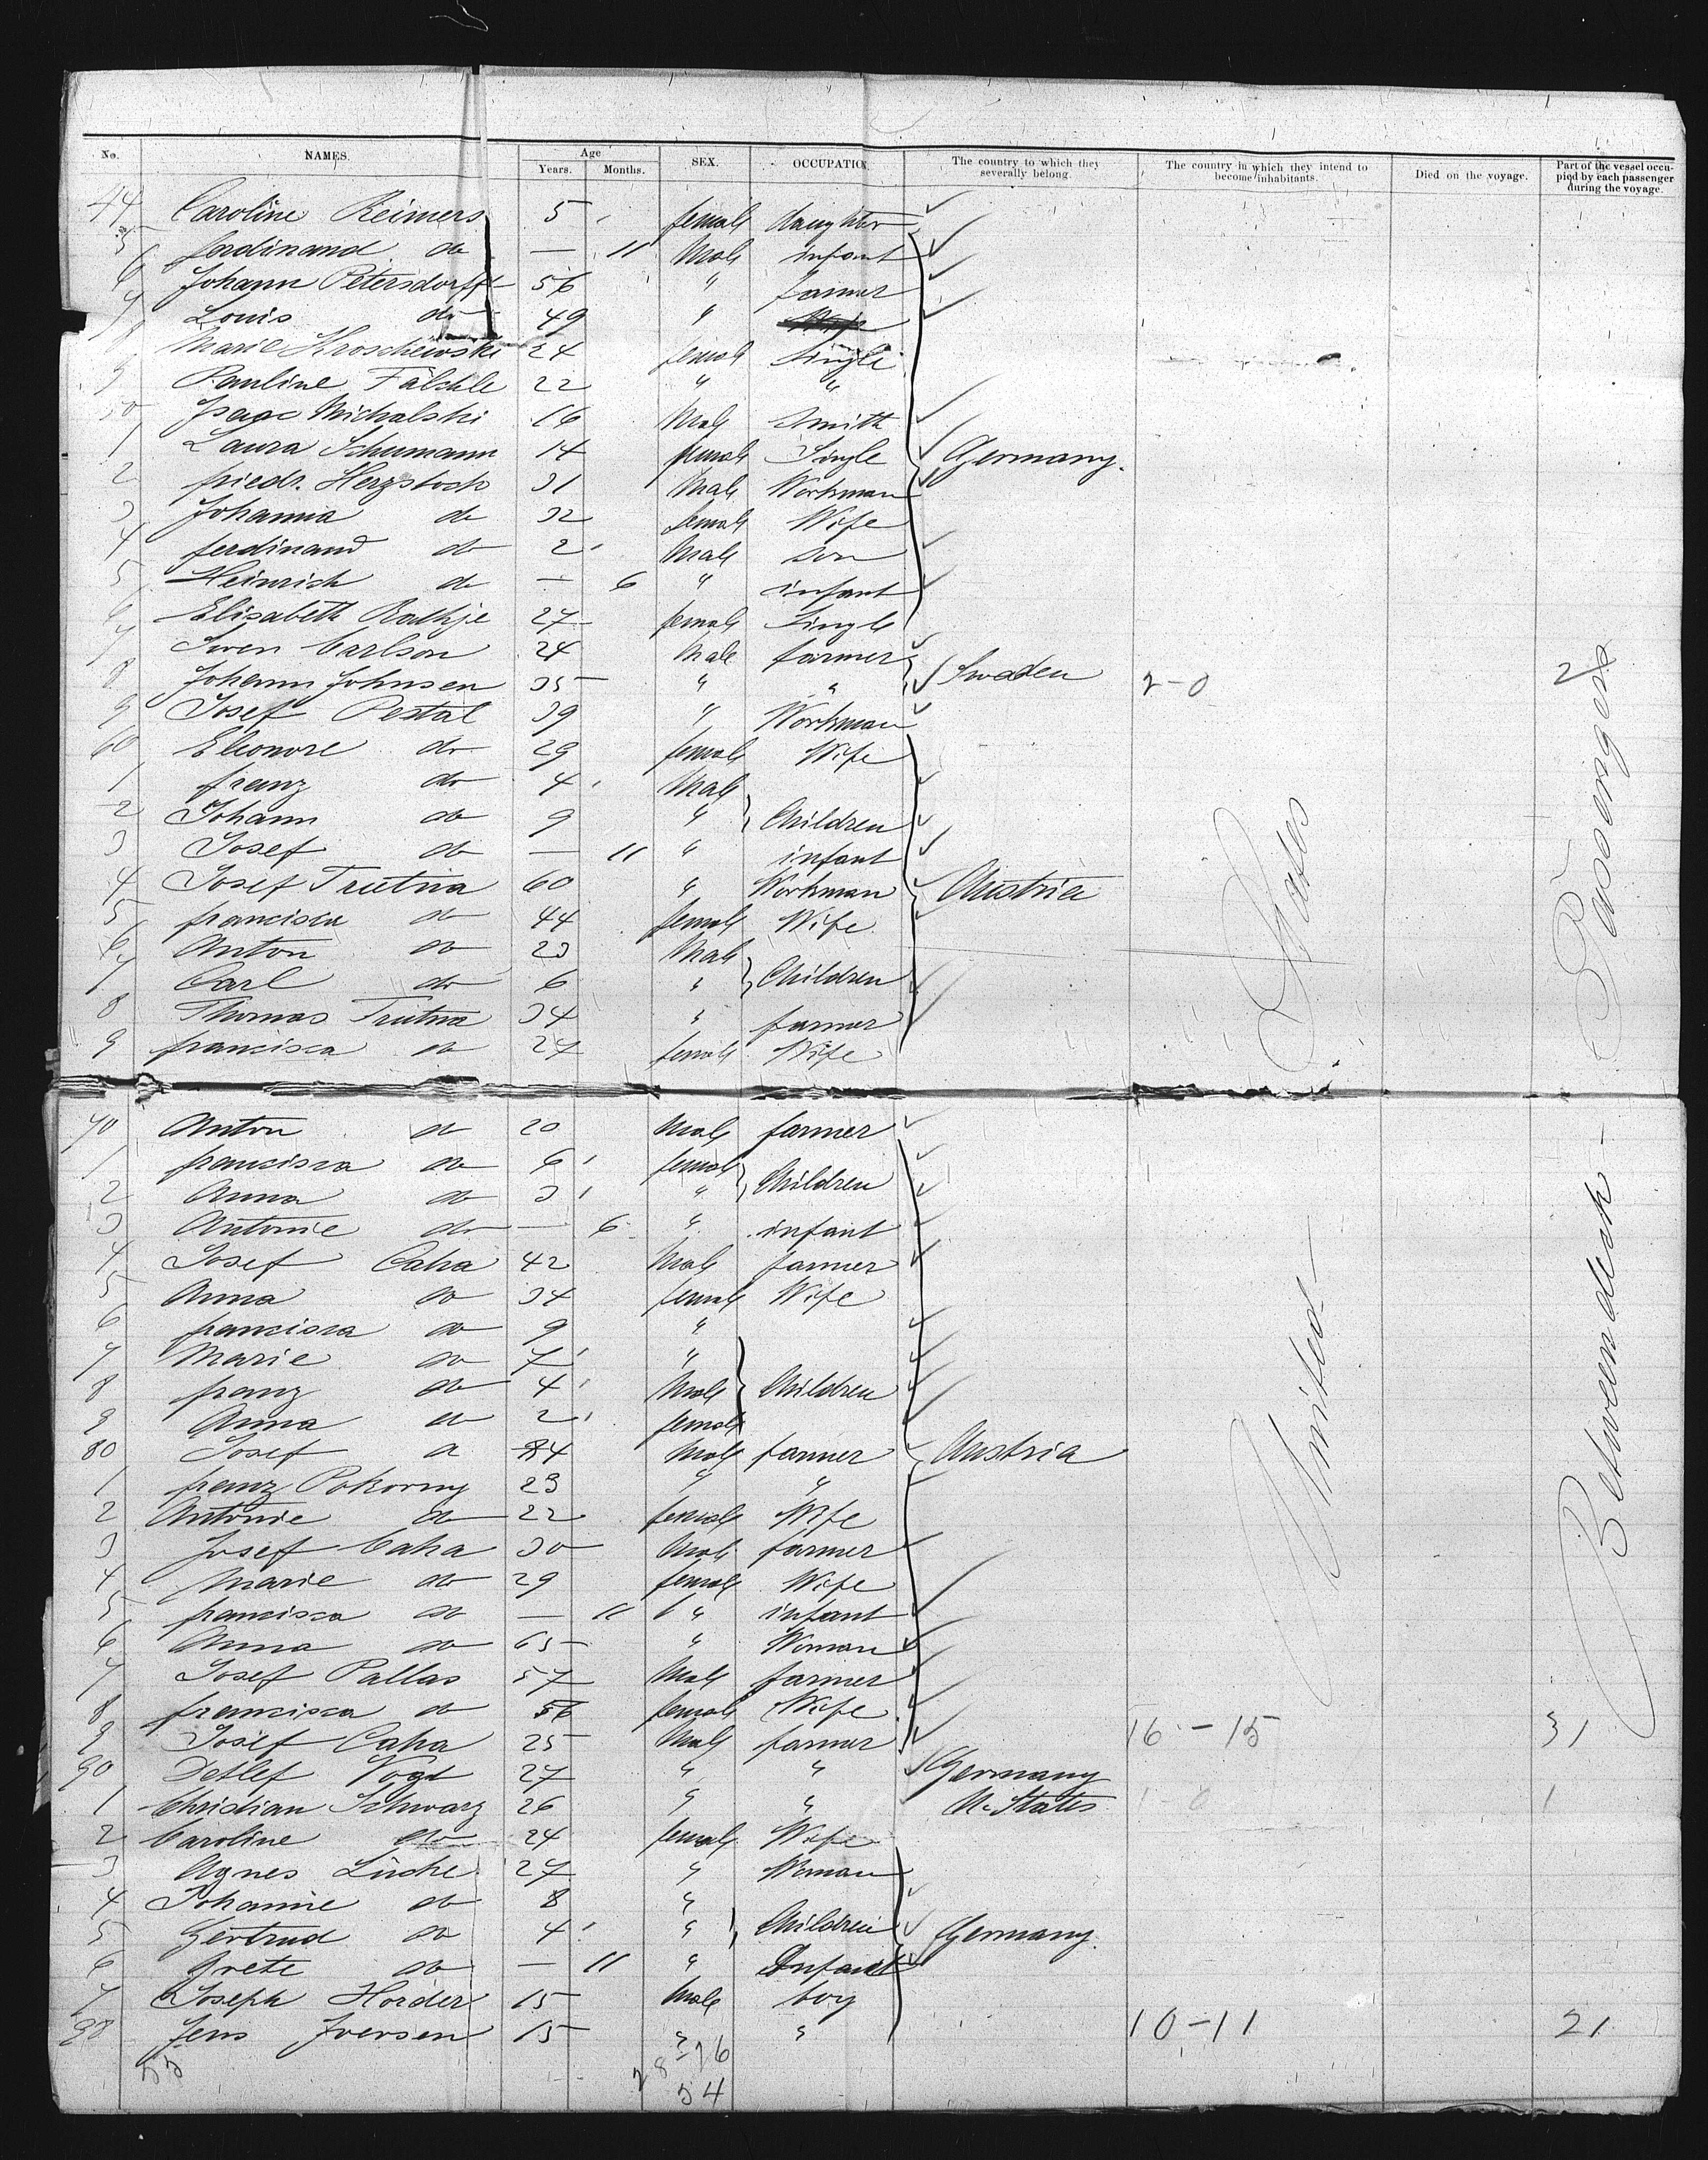 No. NAMES. Age Years. Months. SEX. OCCUPATION The country to which they severally belong. The country in which they intend to become inhabitants. Died on the voyage. Part of the vessel occupied by each passenger during the voyage.
44 Caroline Reimers 5 female daughter
5 ferdinand do — 11 Male infant
6 Johann Petersdorff 56 " farmer
7 Louis do 49 "
8 Marie Kroschewski 24 female Single
9 Pauline Fälchle 22 " "
50 Isaac Michalski 16 Male Smith
1 Laura Schumann 14 female Single Germany.
2 friedr. Herzstock 31 Male Workman
3 Johanna do 32 female Wife
4 ferdinand do 2 Male son
5 Heinrich do — 6 " infant
6 Elisabeth Rathje 27 female Single
7 Swen Carlson 24 Male farmer
8 Johann Johnsen 35 " " Sweden 2-0 2
9 Josef Pestal 39 " Workman
60 Eleonore do 29 female Wife
1 franz do 4 Male
2 Johann do 9 " Children
3 Josef do — 11 " infant
4 Josef Trutna 60 " Workman Austria
5 francisca do 44 female Wife
6 Anton do 23 Male
7 Carl do 6 " Children
8 Thomas Trutna 34 " farmer
9 francisca do 27 female Wife
70 Anton do 20 Male farmer
1 francisca do 6 female
2 Anna do 3 " Children
3 Antonie do — 6 " infant
4 Josef Caha 42 Male farmer
5 Anna do 34 female Wife
6 francisca do 9 "
7 Marie do 7 "
8 franz do 4 Male Children
9 Anna do 2 female
80 Josef do 4 Male farmer Austria
1 franz Pokorny 23 " "
2 Antonie do 22 female Wife
3 Josef Caha 30 Male farmer
4 Marie do 29 female Wife
5 francisca do — 11 " infant
6 Anna do 65 " Woman
7 Josef Pallas 57 Male farmer
8 francisca do 56 female Wife
9 Josef Caha 25 Male farmer 16-15 31
90 Detlef Vogt 27 " " Germany
1 Christian Schwarz 26 " " U. States 1-0 1
2 Caroline do 24 female Wife
3 Agnes Lücke 27 " Woman
4 Johanne do 8 "
5 Gertrud do 4 " Children Germany.
6 Grete do — 11 " Infant
7 Joseph Horder 15 Male boy
98 Jens Iversen 15 " " 10-11 21
55 28-26
54
United States
Between deck Passengers